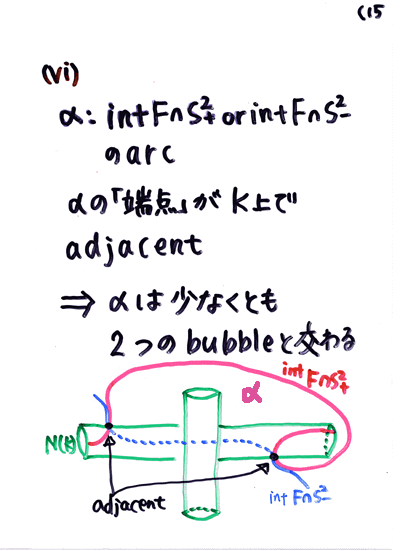 C15
(vi)
α: int F∩S²₊ or int F∩S²₋
のarc
αの「端点」がK上で
adjacent
⇒ αは少なくとも
2つのbubbleと交わる
int F∩S²₊
α
N(k)
adjacent
int F∩S²₋